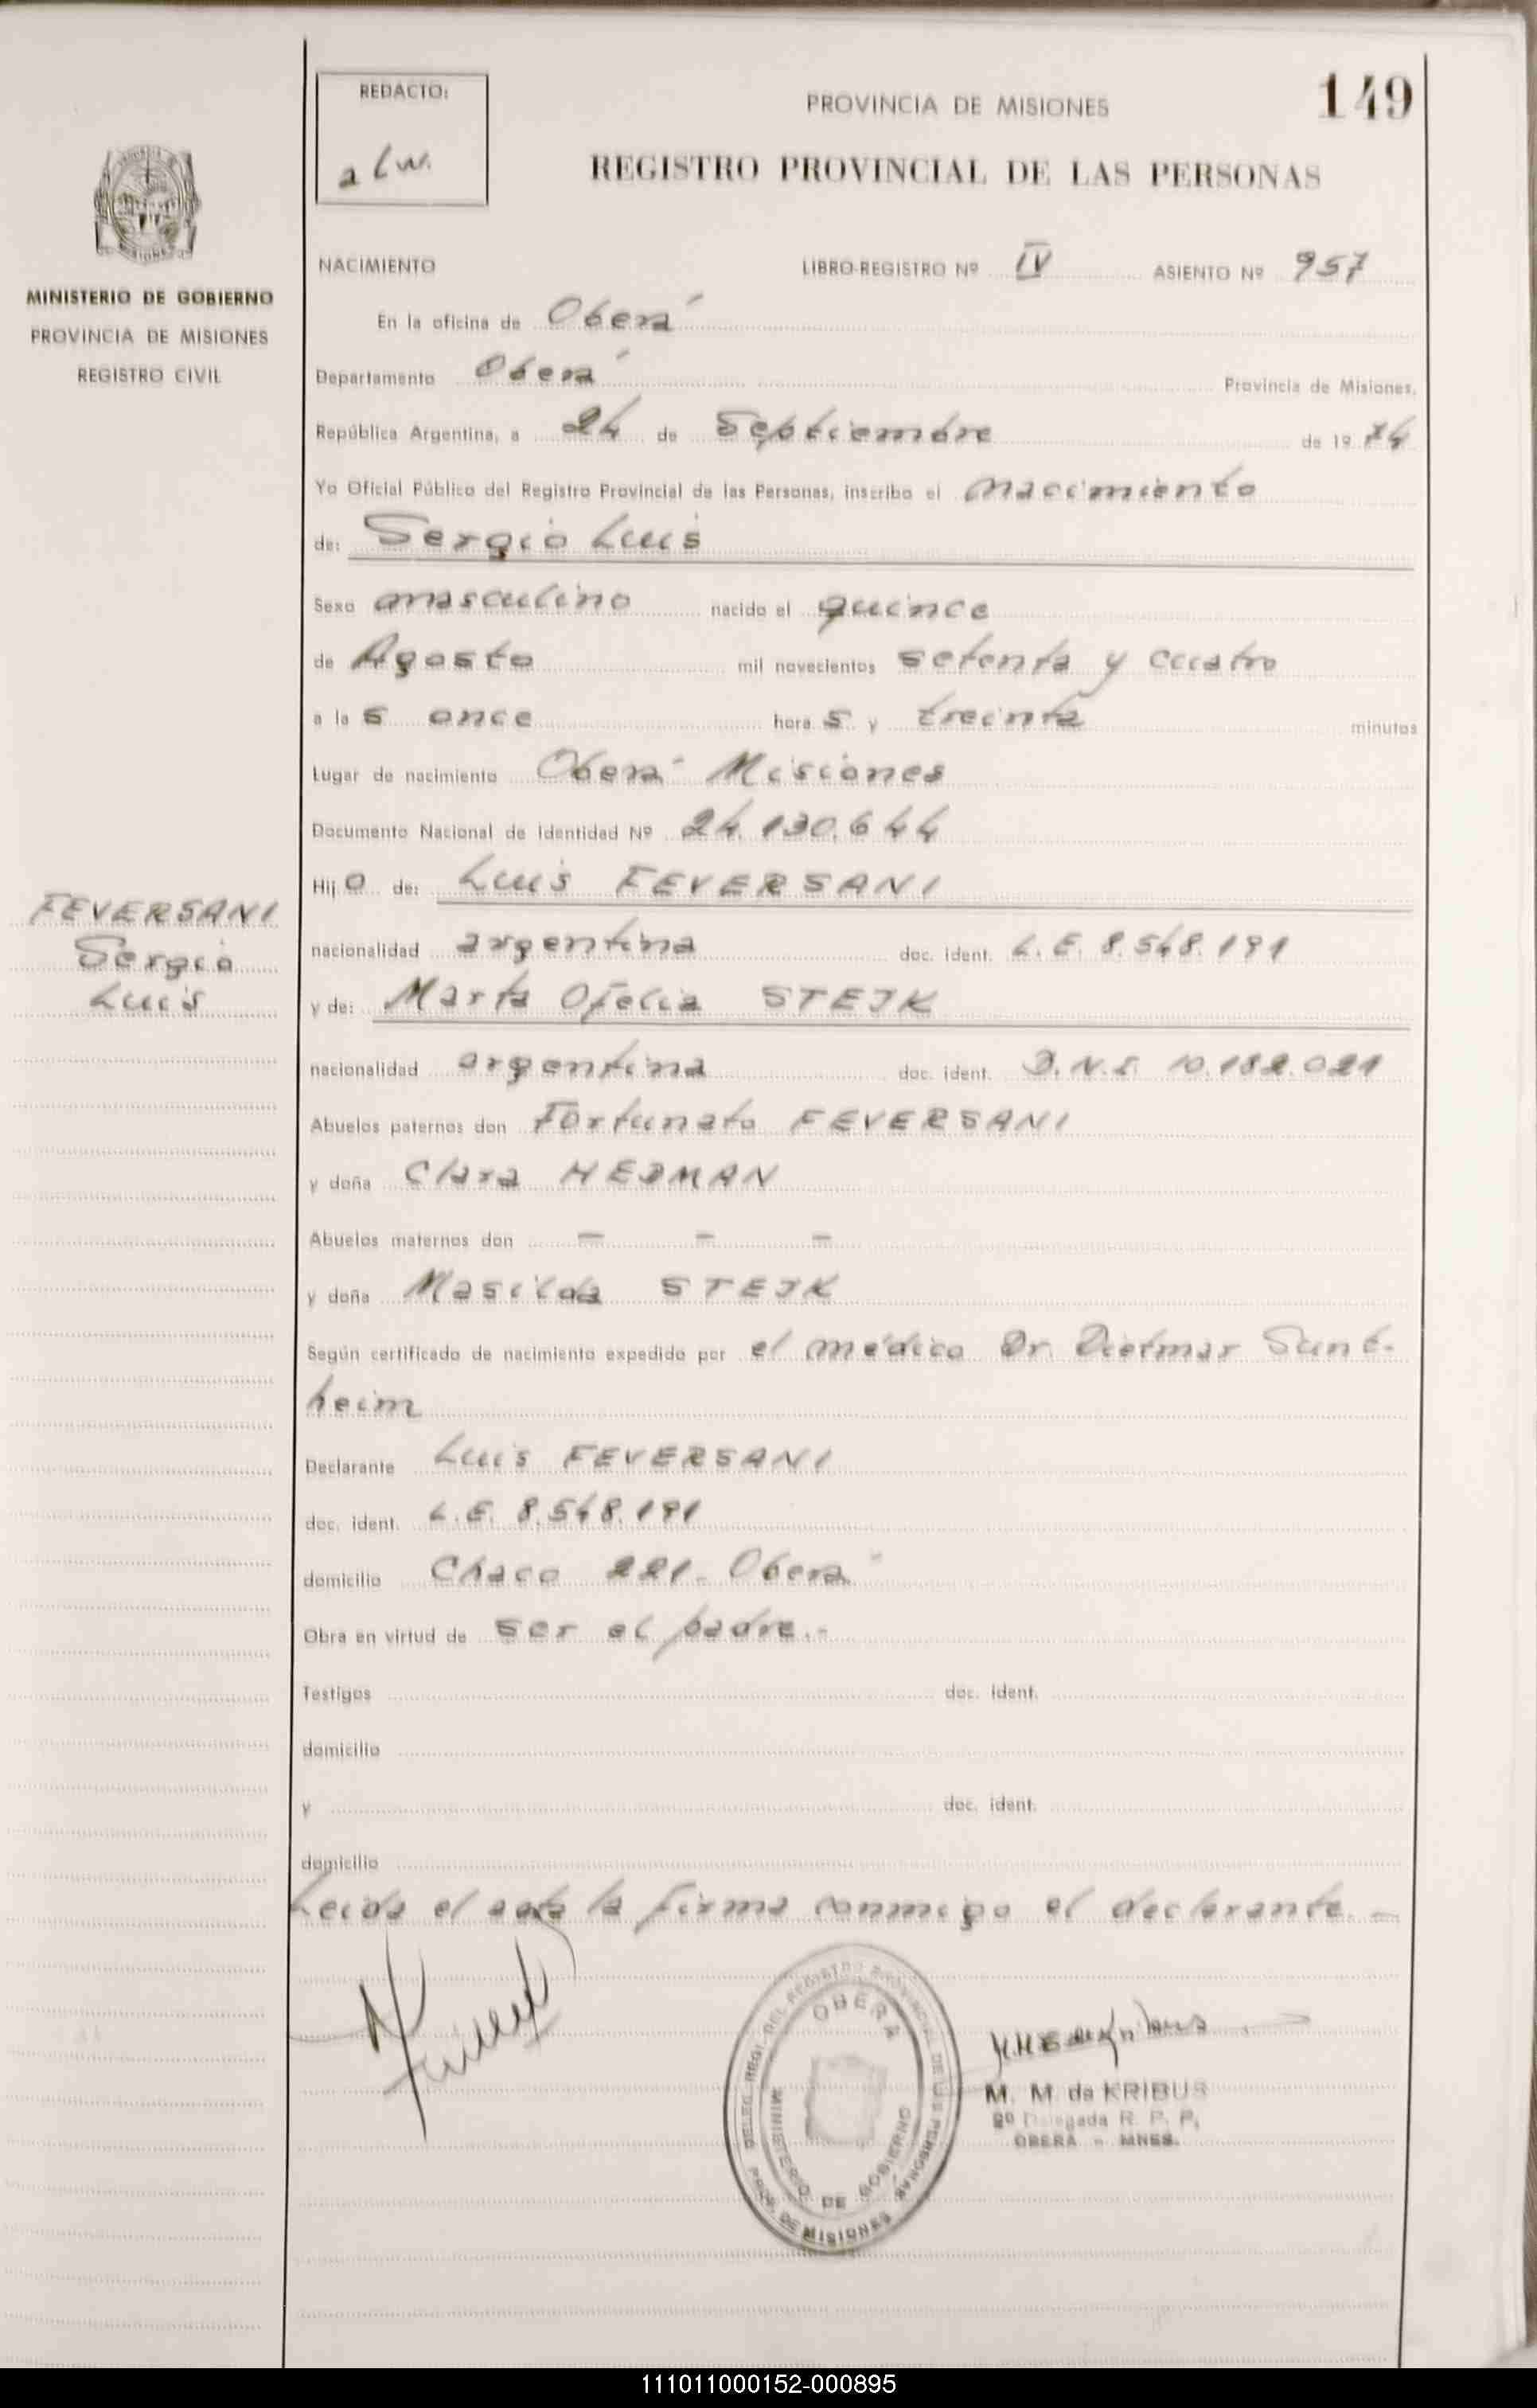 REDACTO:
a l w.
PROVINCIA DE MISIONES
149
REGISTRO PROVINCIAL DE LAS PERSONAS
MINISTERIO DE GOBIERNO
PROVINCIA DE MISIONES
REGISTRO CIVIL
NACIMIENTO LIBRO-REGISTRO Nº IV ASIENTO Nº 957
En la oficina de Oberá
Departamento Oberá Provincia de Misiones,
República Argentina, a 24 de Septiembre de 19 74
Yo Oficial Público del Registro Provincial de las Personas, inscribo el nacimiento
de: Sergio Luis
Sexo masculino nacido el quince
de Agosto mil novecientos setenta y cuatro
a las once horas y treinta minutos
Lugar de nacimiento Oberá Misiones
Documento Nacional de Identidad Nº 24.130.644
Hijo de: Luis FEVERSANI
FEVERSANI
Sergio
Luis
nacionalidad argentina doc. ident. L.E. 8.548.191
y de: Marta Ofelia STEJK
nacionalidad argentina doc. ident. D.N.I. 10.182.021
Abuelos paternos don Fortunato FEVERSANI
y doña Clara HEDMAN
Abuelos maternos don — — —
y doña Masilda STEJK
Según certificado de nacimiento expedido por el médico Dr. Dietmar Sunt-
heim
Declarante Luis FEVERSANI
doc. ident. L.E. 8.548.191
domicilio Chaco 221- Oberá
Obra en virtud de ser el padre.-
Testigos doc. ident.
domicilio
y doc. ident.
domicilio
Leida el acta la firma conmigo el declarante. —
DELEG. REGL. DEL REGISTRO PROVINCIAL DE LAS PERSONAS
OBERÁ
MINISTERIO DE GOBIERNO
PROV. DE MISIONES
M. M. de KRIBUS
2º Delegada R. P. P.
OBERÁ - MNES.
111011000152-000895